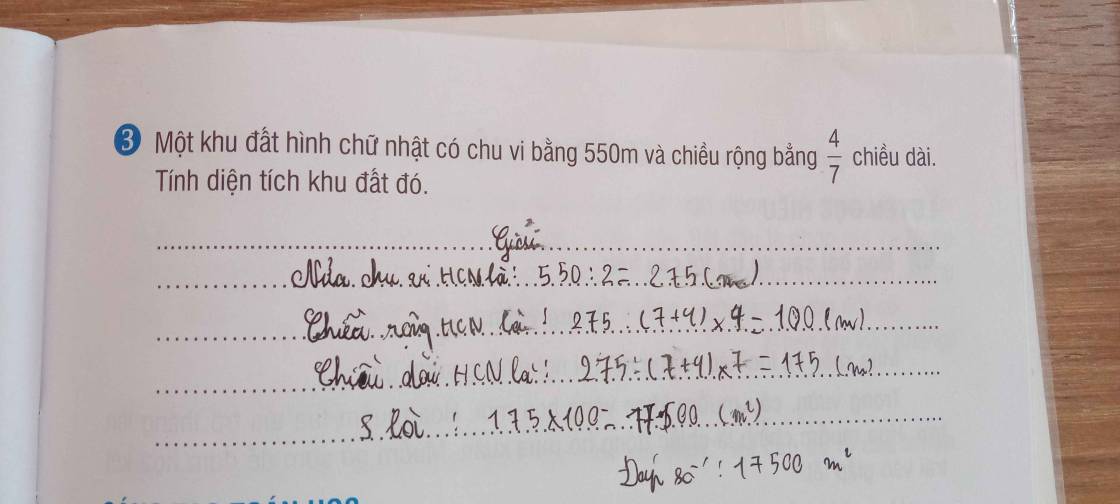 3 Một khu đất hình chữ nhật có chu vi bằng 550m và chiều rộng bằng 4/7 chiều dài.
Tính diện tích khu đất đó.
Giải
Nửa chu vi HCN là: 550:2 = 275 (m)
Chiều rộng HCN là: 275 (7+4) x 4 = 100 (m)
Chiều dài HCN là: 275:(7+4) x 7 = 175 (m)
S là: 175 x 100 = 17500 (m²)
Đáp số: 17500 m²